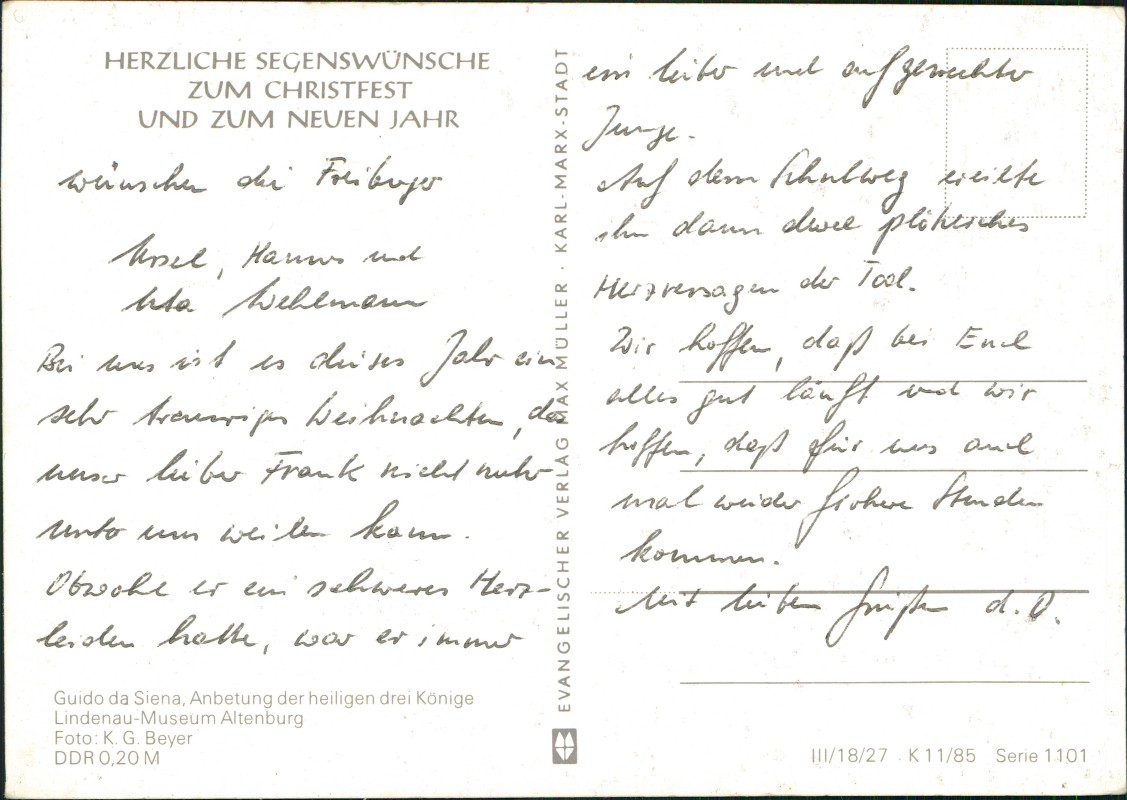 HERZLICHE SEGENSWÜNSCHE
ZUM CHRISTFEST
UND ZUM NEUEN JAHR
wünschen die Freiberger
Ursel, Hannes und
Uta
Bei uns ist es dieses Jahr ein
sehr trauriges Weihnachten, da
unser lieber Frank nicht mehr
unter uns weilen kann.
Obwohl er ein schweres Herz-
leiden hatte, war er immer
Guido da Siena, Anbetung der heiligen drei Könige
Lindenau-Museum Altenburg
Foto: K. G. Beyer
DDR 0,20 M
EVANGELISCHER VERLAG MAX MÜLLER · KARL-MARX-STADT
ein lieber und aufgeweckter
Junge.
Auf dem Schulweg ereilte
ihn dann durch plötzliches
Herzversagen der Tod.
Wir hoffen, daß bei Euch
alles gut läuft und wir
hoffen, daß für uns auch
mal wieder frohere Stunden
kommen.
Mit lieben Grüßen d. O.
III/18/27 · K 11/85 Serie 1101